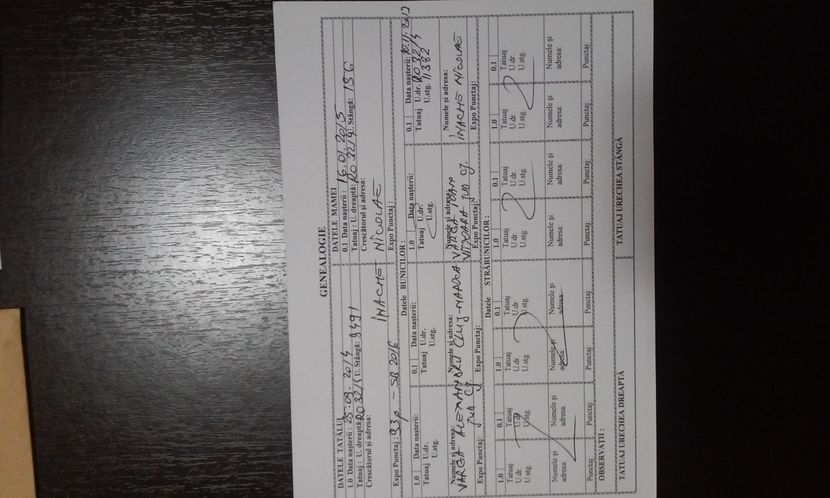 GENEALOGIE
DATELE TATĂLUI
1.0 Data nașterii: 25.09.2014
Tatuaj: U. dreaptă: RO32/4 U. Stângă: 9491
Crescătorul și adresa:
Expo Punctaj: 93p – SB 2016
DATELE MAMEI
0.1 Data nașterii: 16.01.2015
Tatuaj: U. dreaptă: RO 32/4 Stângă: 156
Crescătorul și adresa:
INACHE NICOLAE
Expo Punctaj:
Datele BUNICILOR:
1.0 Data nașterii:
Tatuaj U.dr.
U.stg.
Numele și adresa:
VARGA ALEXANDRU CLUJ-NAPOCA
jud Cj.
Expo Punctaj:
0.1 Data nașterii:
Tatuaj U.dr.
U.stg.
Numele și adresa:
Expo Punctaj:
1.0 Data nașterii:
Tatuaj U.dr.
U.stg.
Numele și adresa:
VARGA IOAN
jud Cj.
Expo Punctaj:
0.1 Data nașterii: 10.11.2013
Tatuaj U.dr. RO 32/4
U.stg. 11382
Numele și adresa:
INACHE NICOLAE
Expo Punctaj:
Datele STRĂBUNICILOR:
1.0
Tatuaj
U.dr
U.stg.
Numele și
adresa:
Punctaj
0.1
Tatuaj
U.dr
U.stg.
Numele și
adresa:
Punctaj
1.0
Tatuaj
U.dr
U.stg.
Numele și
adresa
Punctaj
0.1
Tatuaj
U.dr
U.stg.
Numele și
adresa:
Punctaj
1.0
Tatuaj
U.dr
U.stg.
Numele și
adresa:
Punctaj
0.1
Tatuaj
U.dr
U.stg.
Numele și
adresa:
Punctaj
1.0
Tatuaj
U.dr
U.stg.
Numele și
adresa:
Punctaj
0.1
Tatuaj
U.dr
U.stg.
Numele și
adresa:
Punctaj
OBSERVAȚII:
TATUAJ URECHEA DREAPTĂ
TATUAJ URECHEA STÂNGĂ